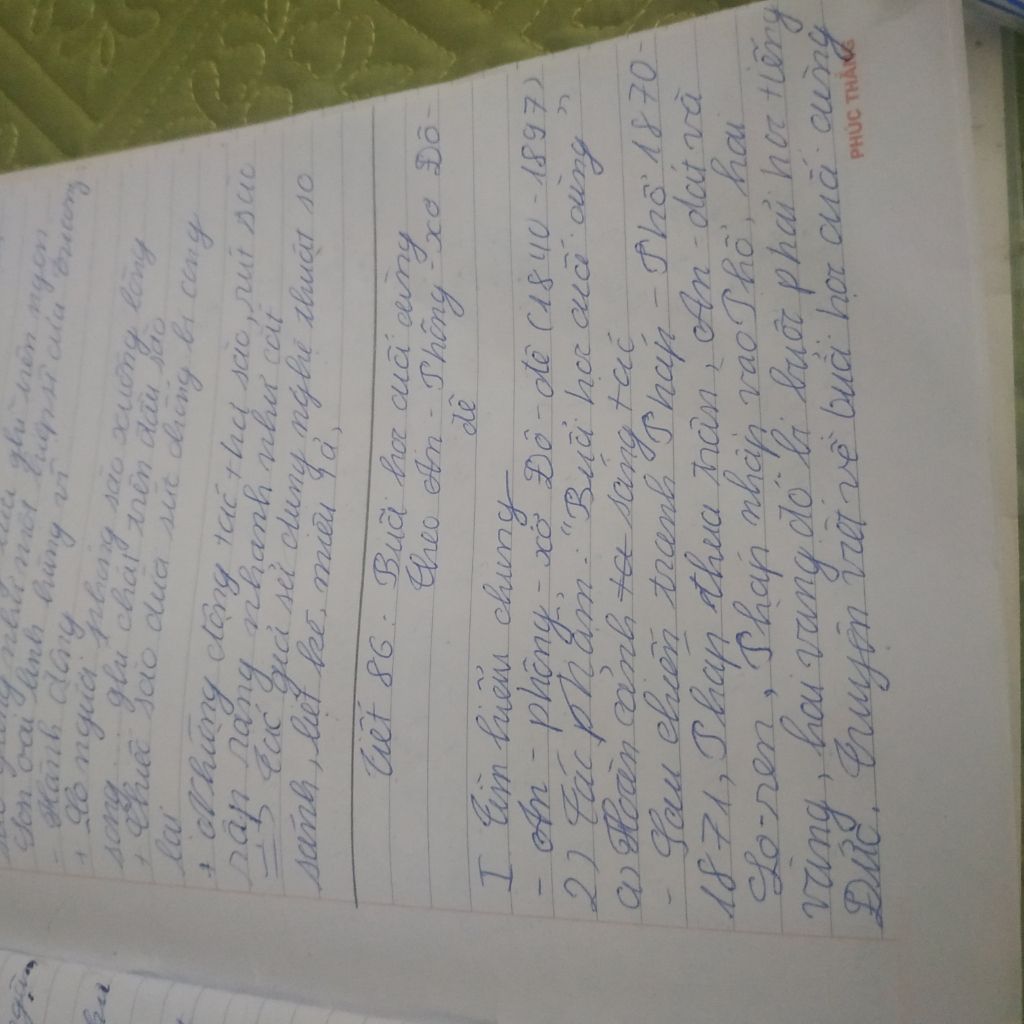 ghì trên ngọn
- Hành động
+ Co người phóng sào xuống lòng
sông ghì chặt trên đầu sào
+ Thuê sào dừa sức chống bị cong
lại
+ Những động tác thả sào, rút sào
rập ràng nhanh như cắt
=> Tác giả sử dụng nghệ thuật so
sánh, liệt kê, miêu tả,
Tiết 86: Buổi học cuối cùng
Theo An-Phông-xơ Đô-
đê
I Tìm hiểu chung
- An-phông-xơ Đô-đê (1840-1897)
2) Tác phẩm: "Buổi học cuối cùng"
a) Hoàn cảnh ta sáng tác
- Sau chiến tranh Pháp-Phổ 1870-
1871, Pháp thua trận, An-dát và
Lo-ren, Pháp nhập vào Phổ, hai
vùng, hai vùng đó bị buộc phải học tiếng
Đức. Truyện viết về buổi học cuối cùng
PHÚC THẮNG